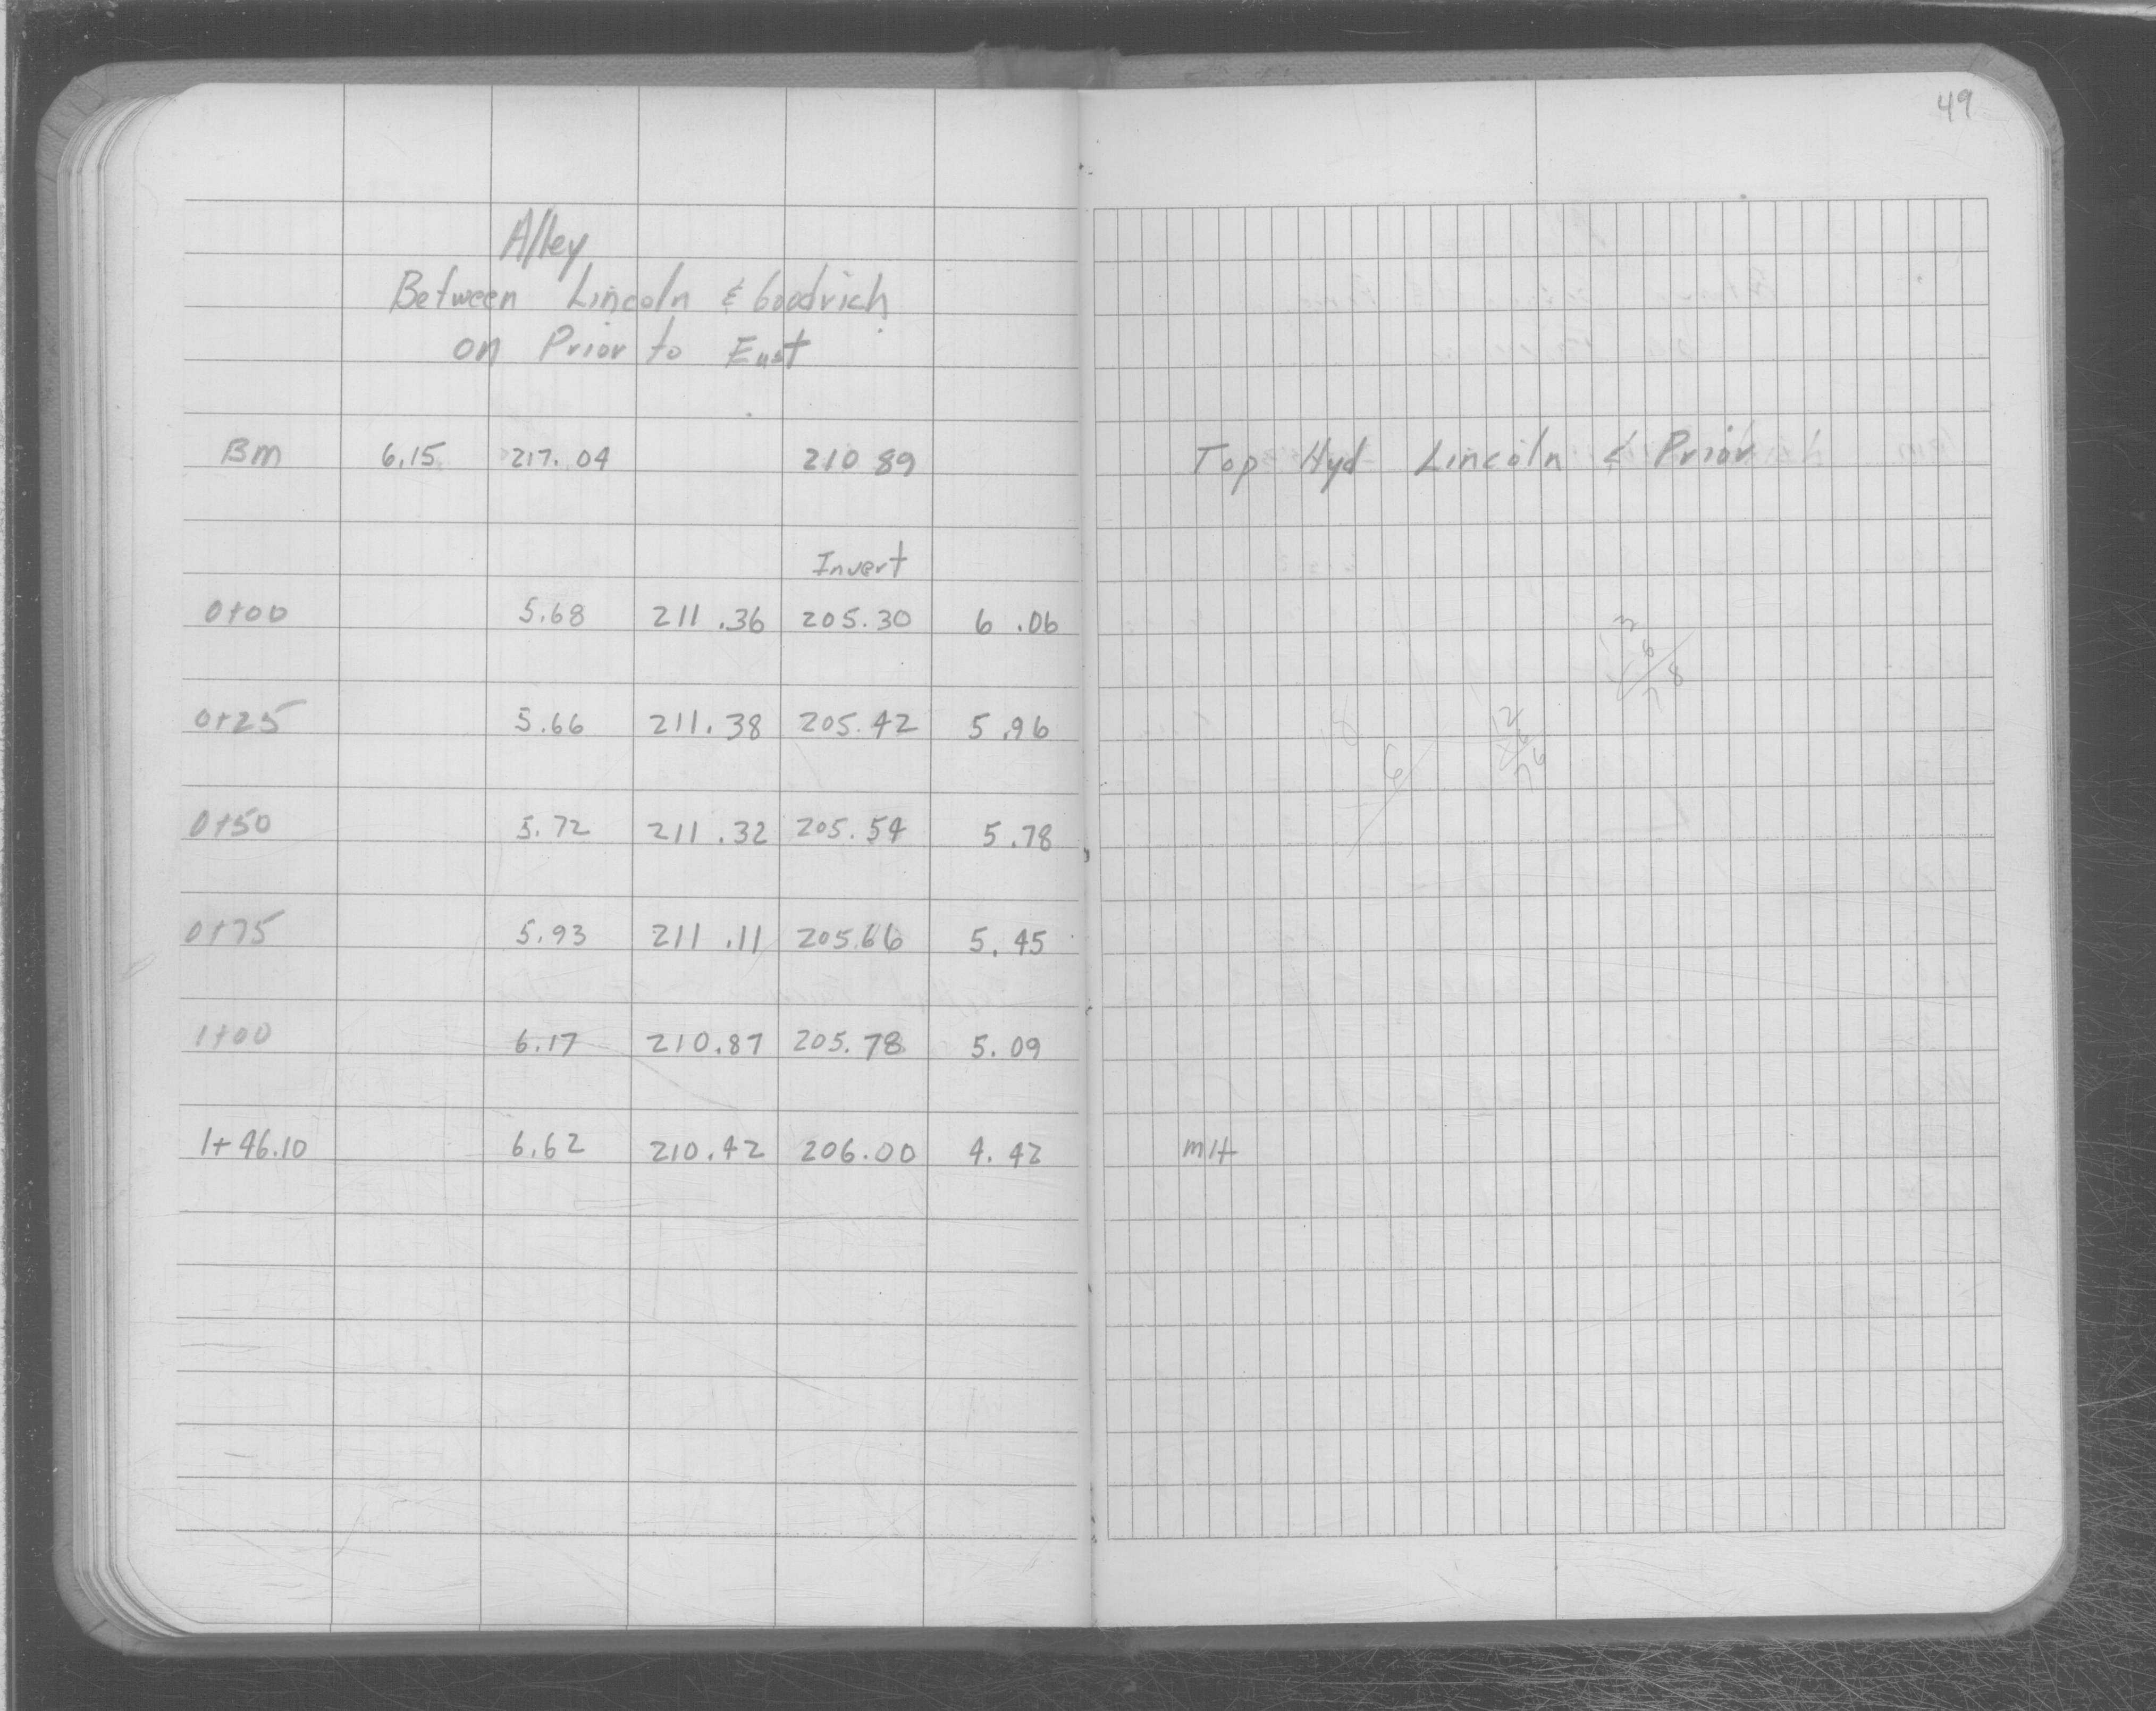 49
Alley
Between Lincoln & Goodrich
on Prior to East
BM 6.15 217.04 210 89 Top Hyd Lincoln & Prior
Invert
0+00 5.68 211.36 205.30 6.06
0+25 5.66 211.38 205.42 5.96
0+50 5.72 211.32 205.54 5.78
0+75 5.93 211.11 205.66 5.45
1+00 6.17 210.87 205.78 5.09
1+46.10 6.62 210.42 206.00 4.42 MH